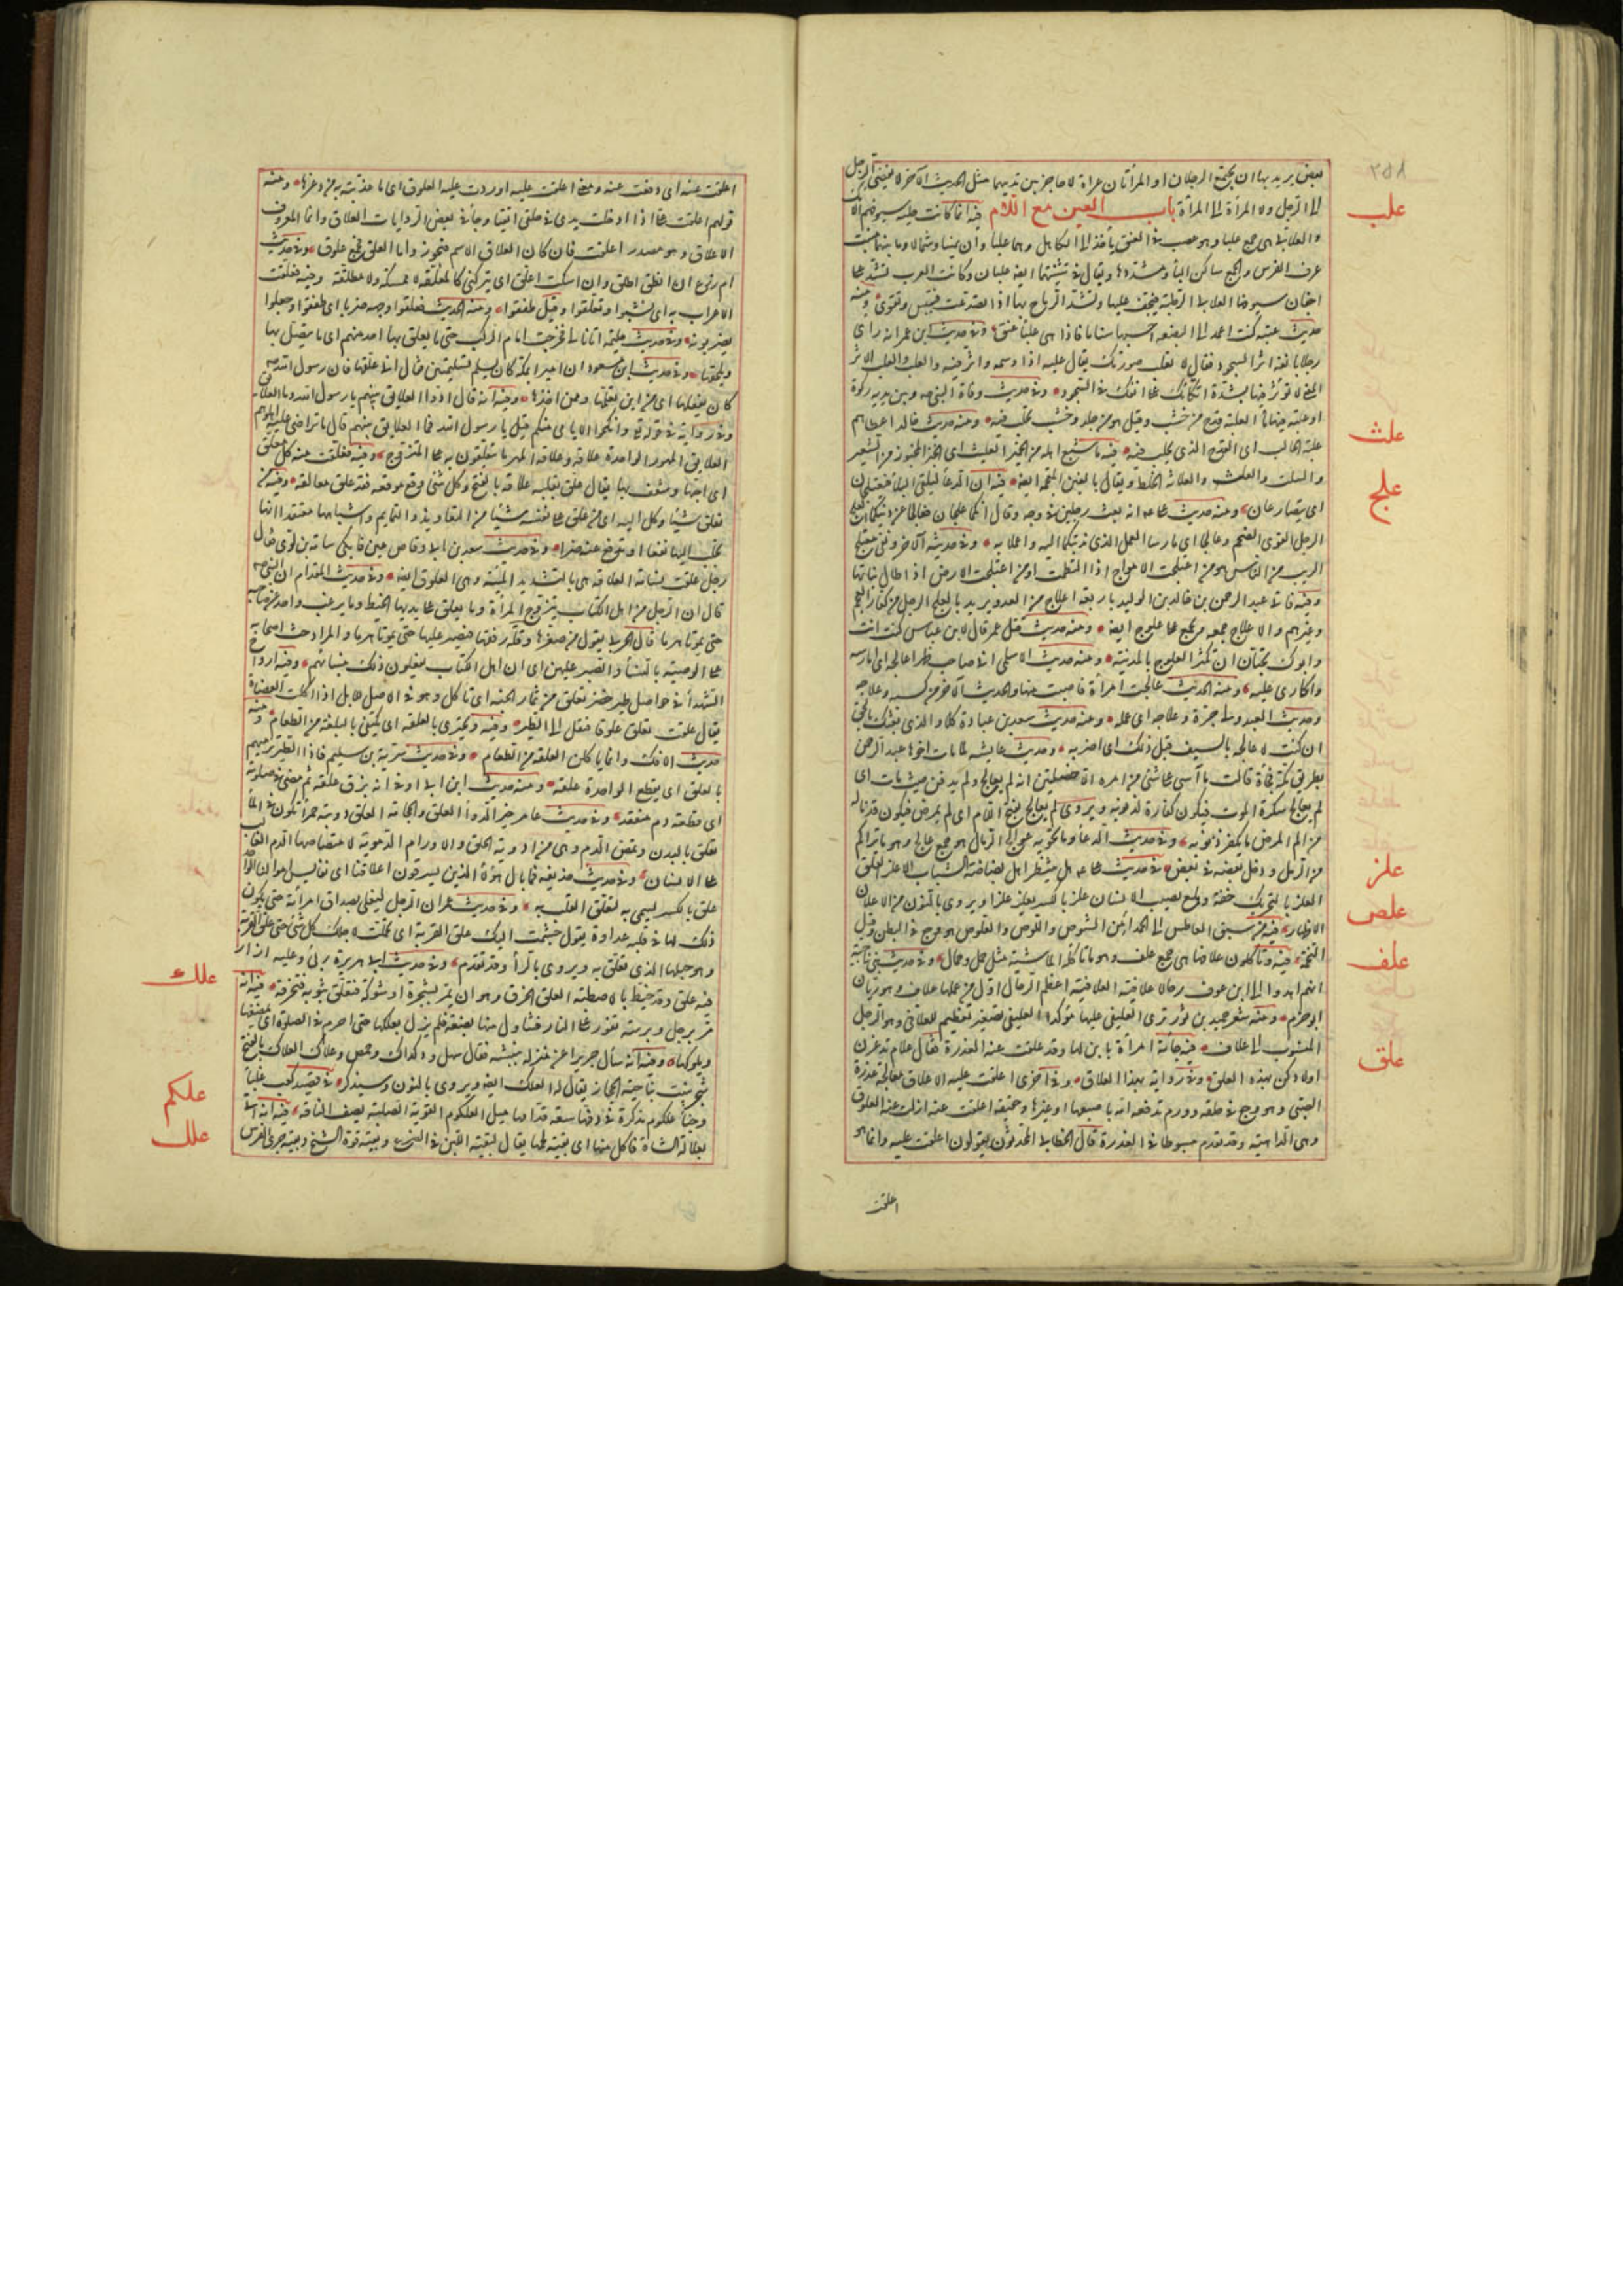 بعض يريد بها ان يجتمع الرجلان او المرأتان عراة لا حاجز بين ثدييهما مثل الحديث الآخر لا يفضي الرجل
الى الرجل ولا المرأة الى المرأة باب العين مع اللام فيه انما كانت حلية سيوفهم الآنك
علب
والعلابي هي جمع علباء وهو عصب في العنق يأخذ الى الكاهل وهما علباوان يمينا وشمالا وما بينهما منبت
عرف الفرس والجمع ساكن الياء ومشددها ويقال في تثنيتهما ايضا علباان وكانت العرب تشد على
اجفان سيوفها العلابي الرطبة فتجف عليها وتشد الرماح بها اذا تصدعت فتيبس وتقوى ومنه
حديث عتبة كنت اعمد الى البضعة احسبها سناما فاذا هي علباء عنق وفي حديث ابن عمر انه رأى
رجلا بانفه اثر السجود فقال لا تعلب صورتك يقال علبه اذا وسمه واثر فيه والعلب والعلب الاثر
المعنى لا تؤثر فيها بشدة اتكائك على انفك في السجود وفي حديث وفاة النبي وبين يديه ركوة
او علبة فيها ماء العلبة قدح من خشب وقيل هو من جلد وخشب يحلب فيه ومنه حديث خالد اعطاهم
علبة الحالب اي القدح الذي يحلب فيه فيه ما شبع اهله من الخبز العليث اي الخبز المخبوز من الشعير
علث
والسلت والعلث والعلاثة الخلط ويقال بالغين المعجمة ايضا فيه ان الدعاء ليلقى البلاء فيعتلجان
علج
اي يتصارعان ومنه حديث على انه بعث رجلين في وجه وقال انكما علجان فعالجا عن دينكما العلج
الرجل القوى الضخم وعالجا اي مارسا العمل الذي ندبتكما اليه واعملا به وفي حديثه الآخر ونفى معتلج
الريب من الناس هو من اعتلجت الامواج اذا التطمت او من اعتلجت الارض اذا طال نباتها
وفيه فاتى عبد الرحمن بن خالد بن الوليد باربعة اعلاج من العدو يريد بالعلج الرجل من كفار العجم
وغيرهم والاعلاج جمعه ويجمع على علوج ايضا ومنه حديث قتل عمر قال لابن عباس كنت انت
وابوك تحبان ان تكثر العلوج بالمدينة ومنه حديث الاسلمي انى صاحب ظهر اعالجه اي امارسه
واكاري عليه ومنه الحديث عالجت امرأة فاصبت منها والحديث الآخر من كسبه وعلاجه
وحديث العبد ولي حره وعلاجه اي عمله ومنه حديث سعد بن عبادة كلا والذي بعثك بالحق
ان كنت لاعالجه بالسيف قبل ذلك اي اضربه وحديث عايشة لما مات اخوها عبد الرحمن
بطريق مكة فجأة قالت ما آسى على شئ من امره الا خصلتين انه لم يعالج ولم يدفن حيث مات اي
لم يعالج سكرة الموت فيكون كفارة لذنوبه ويروى لم يعالج بفتح اللام اي لم يمرض فيكون قد ناله
من الم المرض ما يكفر ذنوبه وفي حديث الدعاء وما تحويه عوالج الرمال هو جمع عالج وهو ما تراكم
من الرمل ودخل بعضه في بعض في حديث على هل ينتظر اهل بضاضة الشباب الا علز القلق
علز
العلز بالتحريك خفة وهلع يصيب الانسان علز بالكسر يعلز علزا ويروى بالنون من الاعلان
الاظهار فيه من سبق العاطس الى الحمد امن الشوص واللوص والعلوص هو وجع في البطن وقيل
علص
التخمة فيه وتأكلون علافها هي جمع علف وهو ما تأكله الماشية مثل جمل وجمال وفي حديث بني ناجية
علف
انهم اهدوا الى ابن عوف رحالا علافية العلافية اعظم الرحال اول من عملها علاف وهو زبان
ابو جرم ومنه شعر حميد بن ثور ترى العليفي عليها موكدا العليفي تصغير تعظيم للعلافي وهو الرحل
المنسوب الى علاف فيه جاءته امرأة بابن لها وقد علقت عنه العذرة فقال علام تدغرن
علق
اولادكن بهذه العلق وفي رواية بهذا العلاق وفي اخرى اعلقت عليه الاعلاق معالجة عذرة
الصبي وهو وجع في حلقه وورم تدفعه امه باصبعها او غيرها وحقيقة اعلقت عنه ازلت عنه العلوق
وهي الداهية وقد تقدم مبسوطا في العذرة قال الخطابي المحدثون يقولون اعلقت عليه وانما هو
اعلقت
اعلقت عنه اي دفعت عنه ومعنى اعلقت عليه اوردت عليه العلوق اي ما عذبته به من دغرها ومنه
قولهم اعلقت على اذا ادخلت يدي في حلقي اتقيا وجاء في بعض الروايات العلاق وانما المعروف
الاعلاق وهو مصدر اعلقت فان كان العلاق الاسم فيجوز واما العلق فجمع علوق وفي حديث
ام زرع ان انطق اطلق وان اسكت اعلق اي يتركني كالمعلقة لا ممسكة ولا مطلقة وفيه فعلقت
الاعراب به اي نشبوا وتعلقوا وقيل طفقوا ومنه الحديث فعلقوا وجهه ضربا اي طفقوا وجعلوا
يضربونه وفي حديث حليمة اتانا لي فخرجت امام الركب حتى ما يعلق بها احد منهم اي ما يتصل بها
ويلحقها وفي حديث ابن مسعود ان اميرا بمكة كان يسلم تسليمتين فقال انى علقها فان رسول الله
كان يفعلها اي من اين تعلمها وممن اخذها وفيه انه قال ادوا العلايق بينهم يا رسول الله وما العلايق
وفي رواية في قوله تعالى وانكحوا الايامى منكم قيل يا رسول الله فما العلايق بينهم قال ما تراضى عليه اهلوهم
العلايق المهور الواحدة علاقة وعلاقة المهر ما يتعلقون به على المتزوج وفيه فعلقت منه كل معلق
اي احبها وشغف بها يقال علق بقلبه علاقة بالفتح وكل شئ وقع موقعه فقد علق معالقه وفيه من
تعلق شيئا وكل اليه اي من علق على نفسه شيئا من التعاويذ والتمايم واشباهها معتقدا انها
تجلب اليها نفعا او تدفع عنه ضرا وفي حديث سعد بن ابي وقاص عين فابكى سامة بن لؤى فقال
رجل علقت بسامة العلاقة هي بالتشديد المنية وهي العلوق ايضا وفي حديث المقدام ان النبي
قال ان الرجل من اهل الكتاب يتزوج المرأة وما يعلق على يديها الخيط وما يرغب واحد عن صاحبه
حتى يموتا هرما قال الحربي يقول من صغرها وقلة رفقها فيصبر عليها حتى يموتا هرما والمراد حث اصحابه
على الوصية بالنساء والصبر عليهن اي ان اهل الكتاب يفعلون ذلك بنسائهم وفيه ارواح
الشهداء في حواصل طير خضر تعلق من ثمار الجنة اي تأكل وهو في الاصل للابل اذا اكلت العضاه
يقال علقت تعلق علوقا فنقل الى الطير وفيه ويجتزي بالعلقة اي يكتفي بالبلغة من الطعام ومنه
حديث الافك وانما يأكلن العلقة من الطعام وفي حديث سرية بني سليم فاذا الطير ترميهم
بالعلق اي بقطع الواحدة علقة ومنه حديث ابن ابي اوفى انه بزق علقة ثم مضى في صلوته
اي قطعة دم منعقد وفي حديث عامر خير الدواء العلق والحجامة العلق دويبة حمراء تكون في الماء
تعلق بالبدن وتمص الدم وهي من ادوية الحلق والاورام الدموية لامتصاصها الدم الغالب
على الانسان وفي حديث حذيفة فما بال هؤلاء الذين يسرقون اعلاقنا اي نفايس اموالنا الواحد
علق بالكسر سمي به لتعلق القلب به وفي حديث عمر ان الرجل ليغلى بصداق امرأته حتى يكون
ذلك لها في قلبه عداوة يقول جشمت اليك علق القربة اي تحملت لاجلك كل شئ حتى علق القربة
وهو حبلها الذي تعلق به ويروى بالراء وقد تقدم وفي حديث ابي هريرة رئي وعليه ازار
فيه علق وقد خيطه بالاصطبة العلق الخرق وهو ان يمر بشجرة او شوكة فتعلق بثوبه فتخرقه فيه انه
علك
مر برجل وبرمته تفور على النار فتناول منها بضعة فلم يزل يعلكها حتى احرم في الصلوة اي يمضغها
ويلوكها وفيه انه سأل جريرا عن منزله ببيشة فقال سهل ودكداك وحمض وعلاك العلاك بالفتح
شجر ينبت بناحية الحجاز يقال له العلك ايضا ويروى بالنون وسيذكر في قصيد كعب غلباء
علكم
وجناء علكوم مذكرة في دفها سعة قدامها ميل العلكوم القوية الصلبة يصف الناقة فيه انه اتي
علل
بعلالة الشاة فاكل منها اي بقية لحمها يقال لبقية اللبن في الضرع وبقية قوة الشيخ وبقية جري الفرس